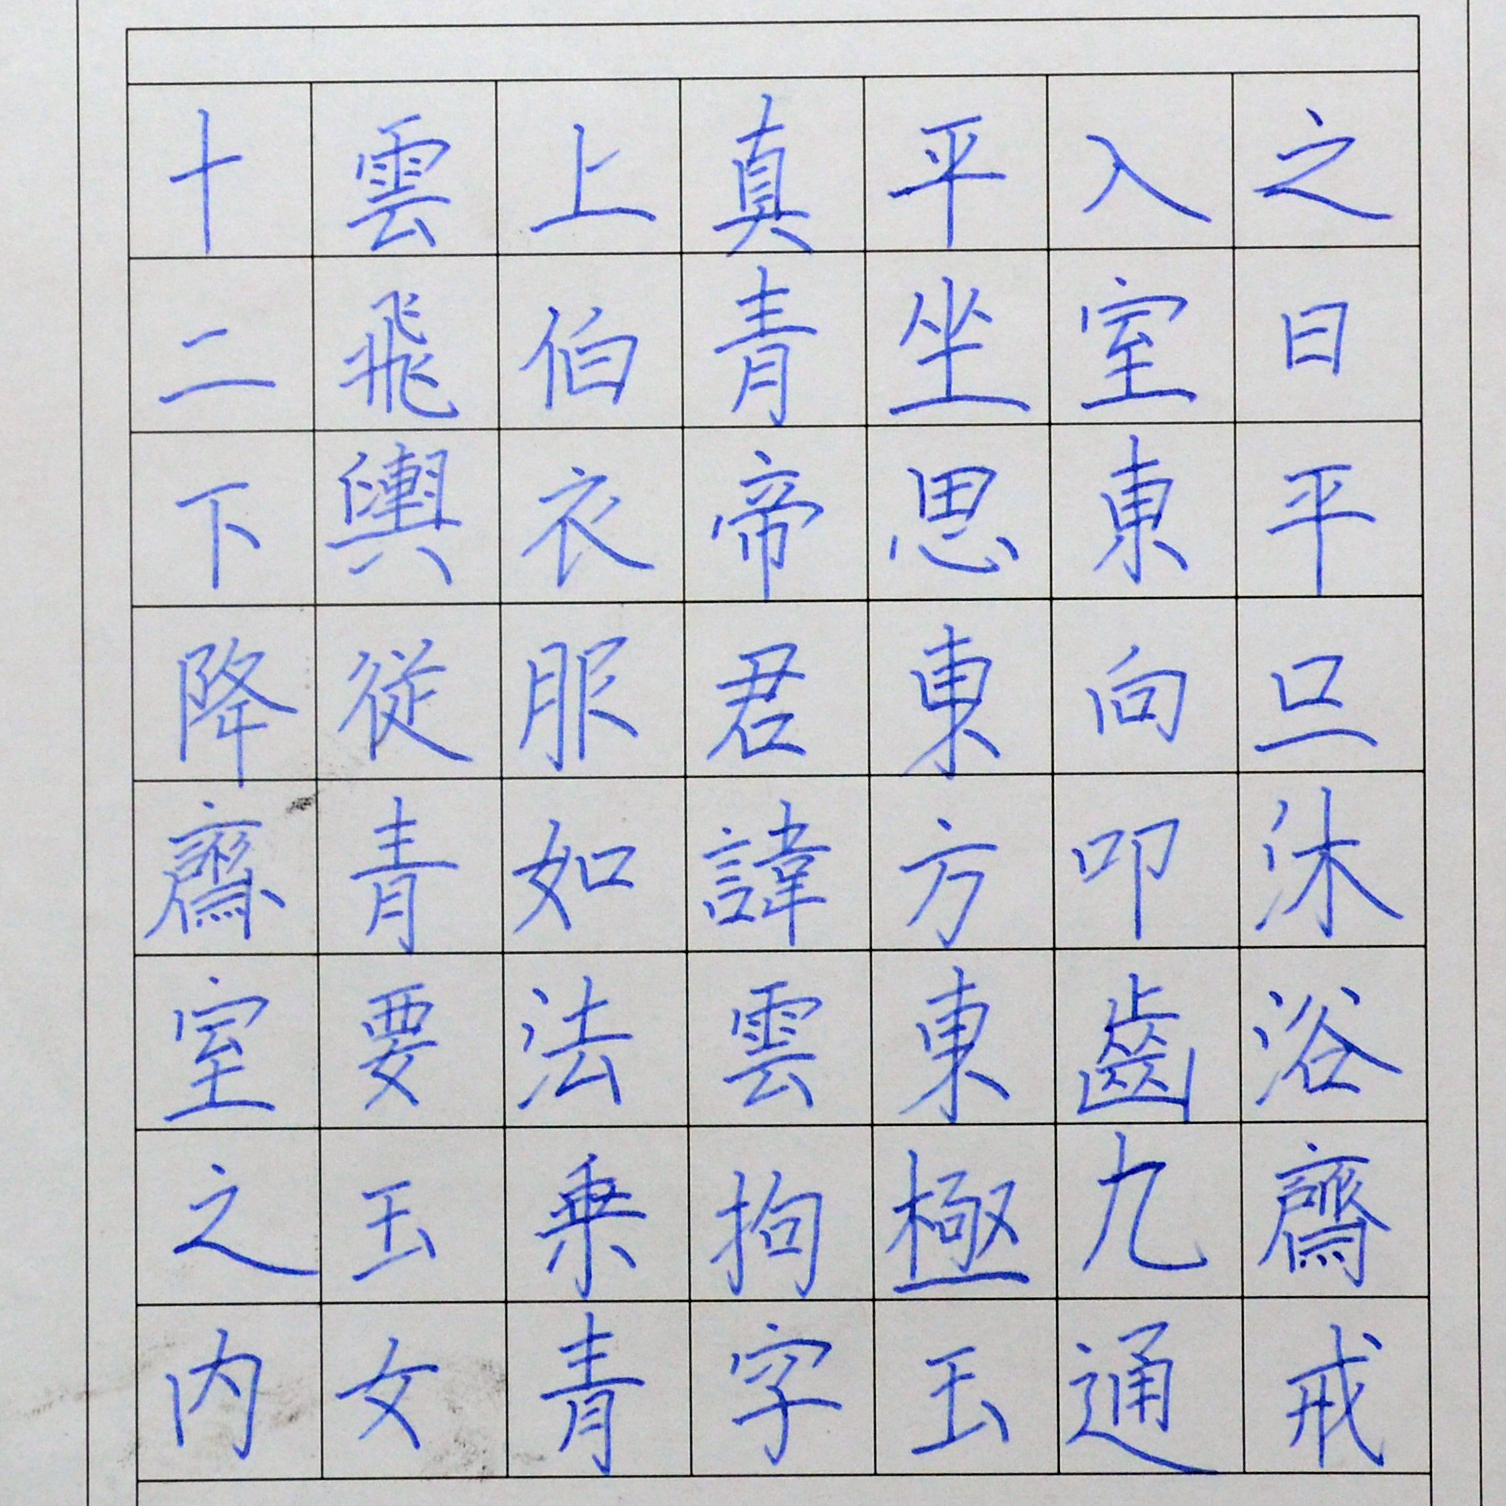 之日平旦沐浴齋戒
入室東向叩齒九通
平坐思東方東極玉
真青帝君諱雲拘字
上伯衣服如法乗青
雲飛輿從青要玉女
十二下降齋室之内